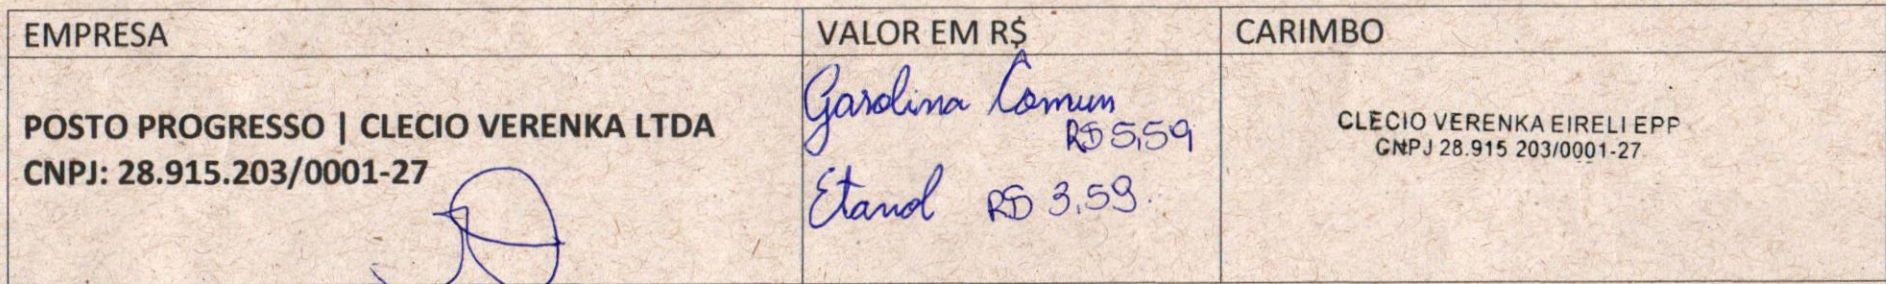 EMPRESA
VALOR EM R$
CARIMBO
POSTO PROGRESSO | CLECIO VERENKA LTDA
CNPJ: 28.915.203/0001-27
Gasolina Comum
R$ 5,59
Etanol R$ 3,59.
CLECIO VERENKA EIRELI EPP
CNPJ 28.915 203/0001-27